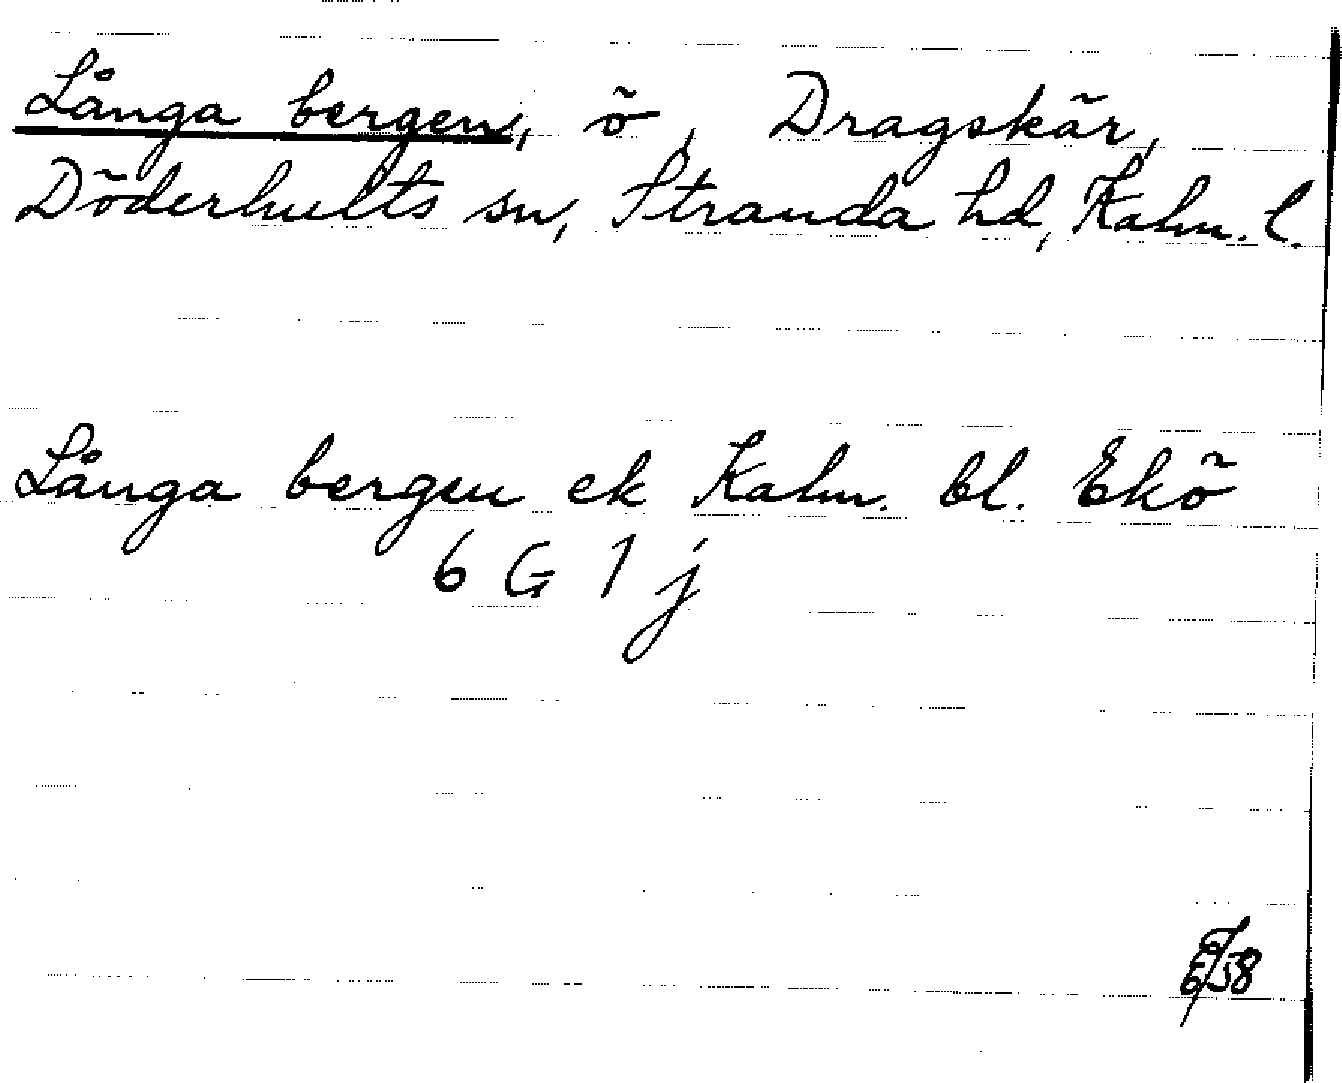 Långa bergen, ö, Dragskär,
Döderhults sn, Stranda hd, Kalm. l.
Långa bergen ek Kalm. bl. Ekö
6 G 1 j
58